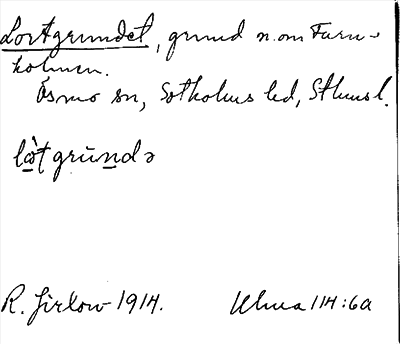 Lortgrundet, grund n. om Furu-
holmen.
Ösmo sn, Sotholms hd, Sthms l.
lo̠̍t grùndə
R. Jirlow 1914. Ulma 114:6a